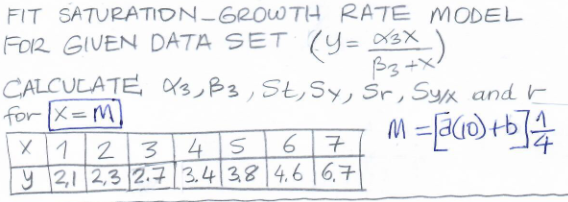 FIT SATURATION-GROWTH RATE MODEL
FOR GIVEN DATA SET (y = α3x / β3+x)
CALCULATE α3, β3, St, Sy, Sr, Sy/x and r
for x=M M = [a(10)+b] 1/4
x 1 2 3 4 5 6 7
y 2,1 2,3 2.7 3.4 3,8 4,6 6,7